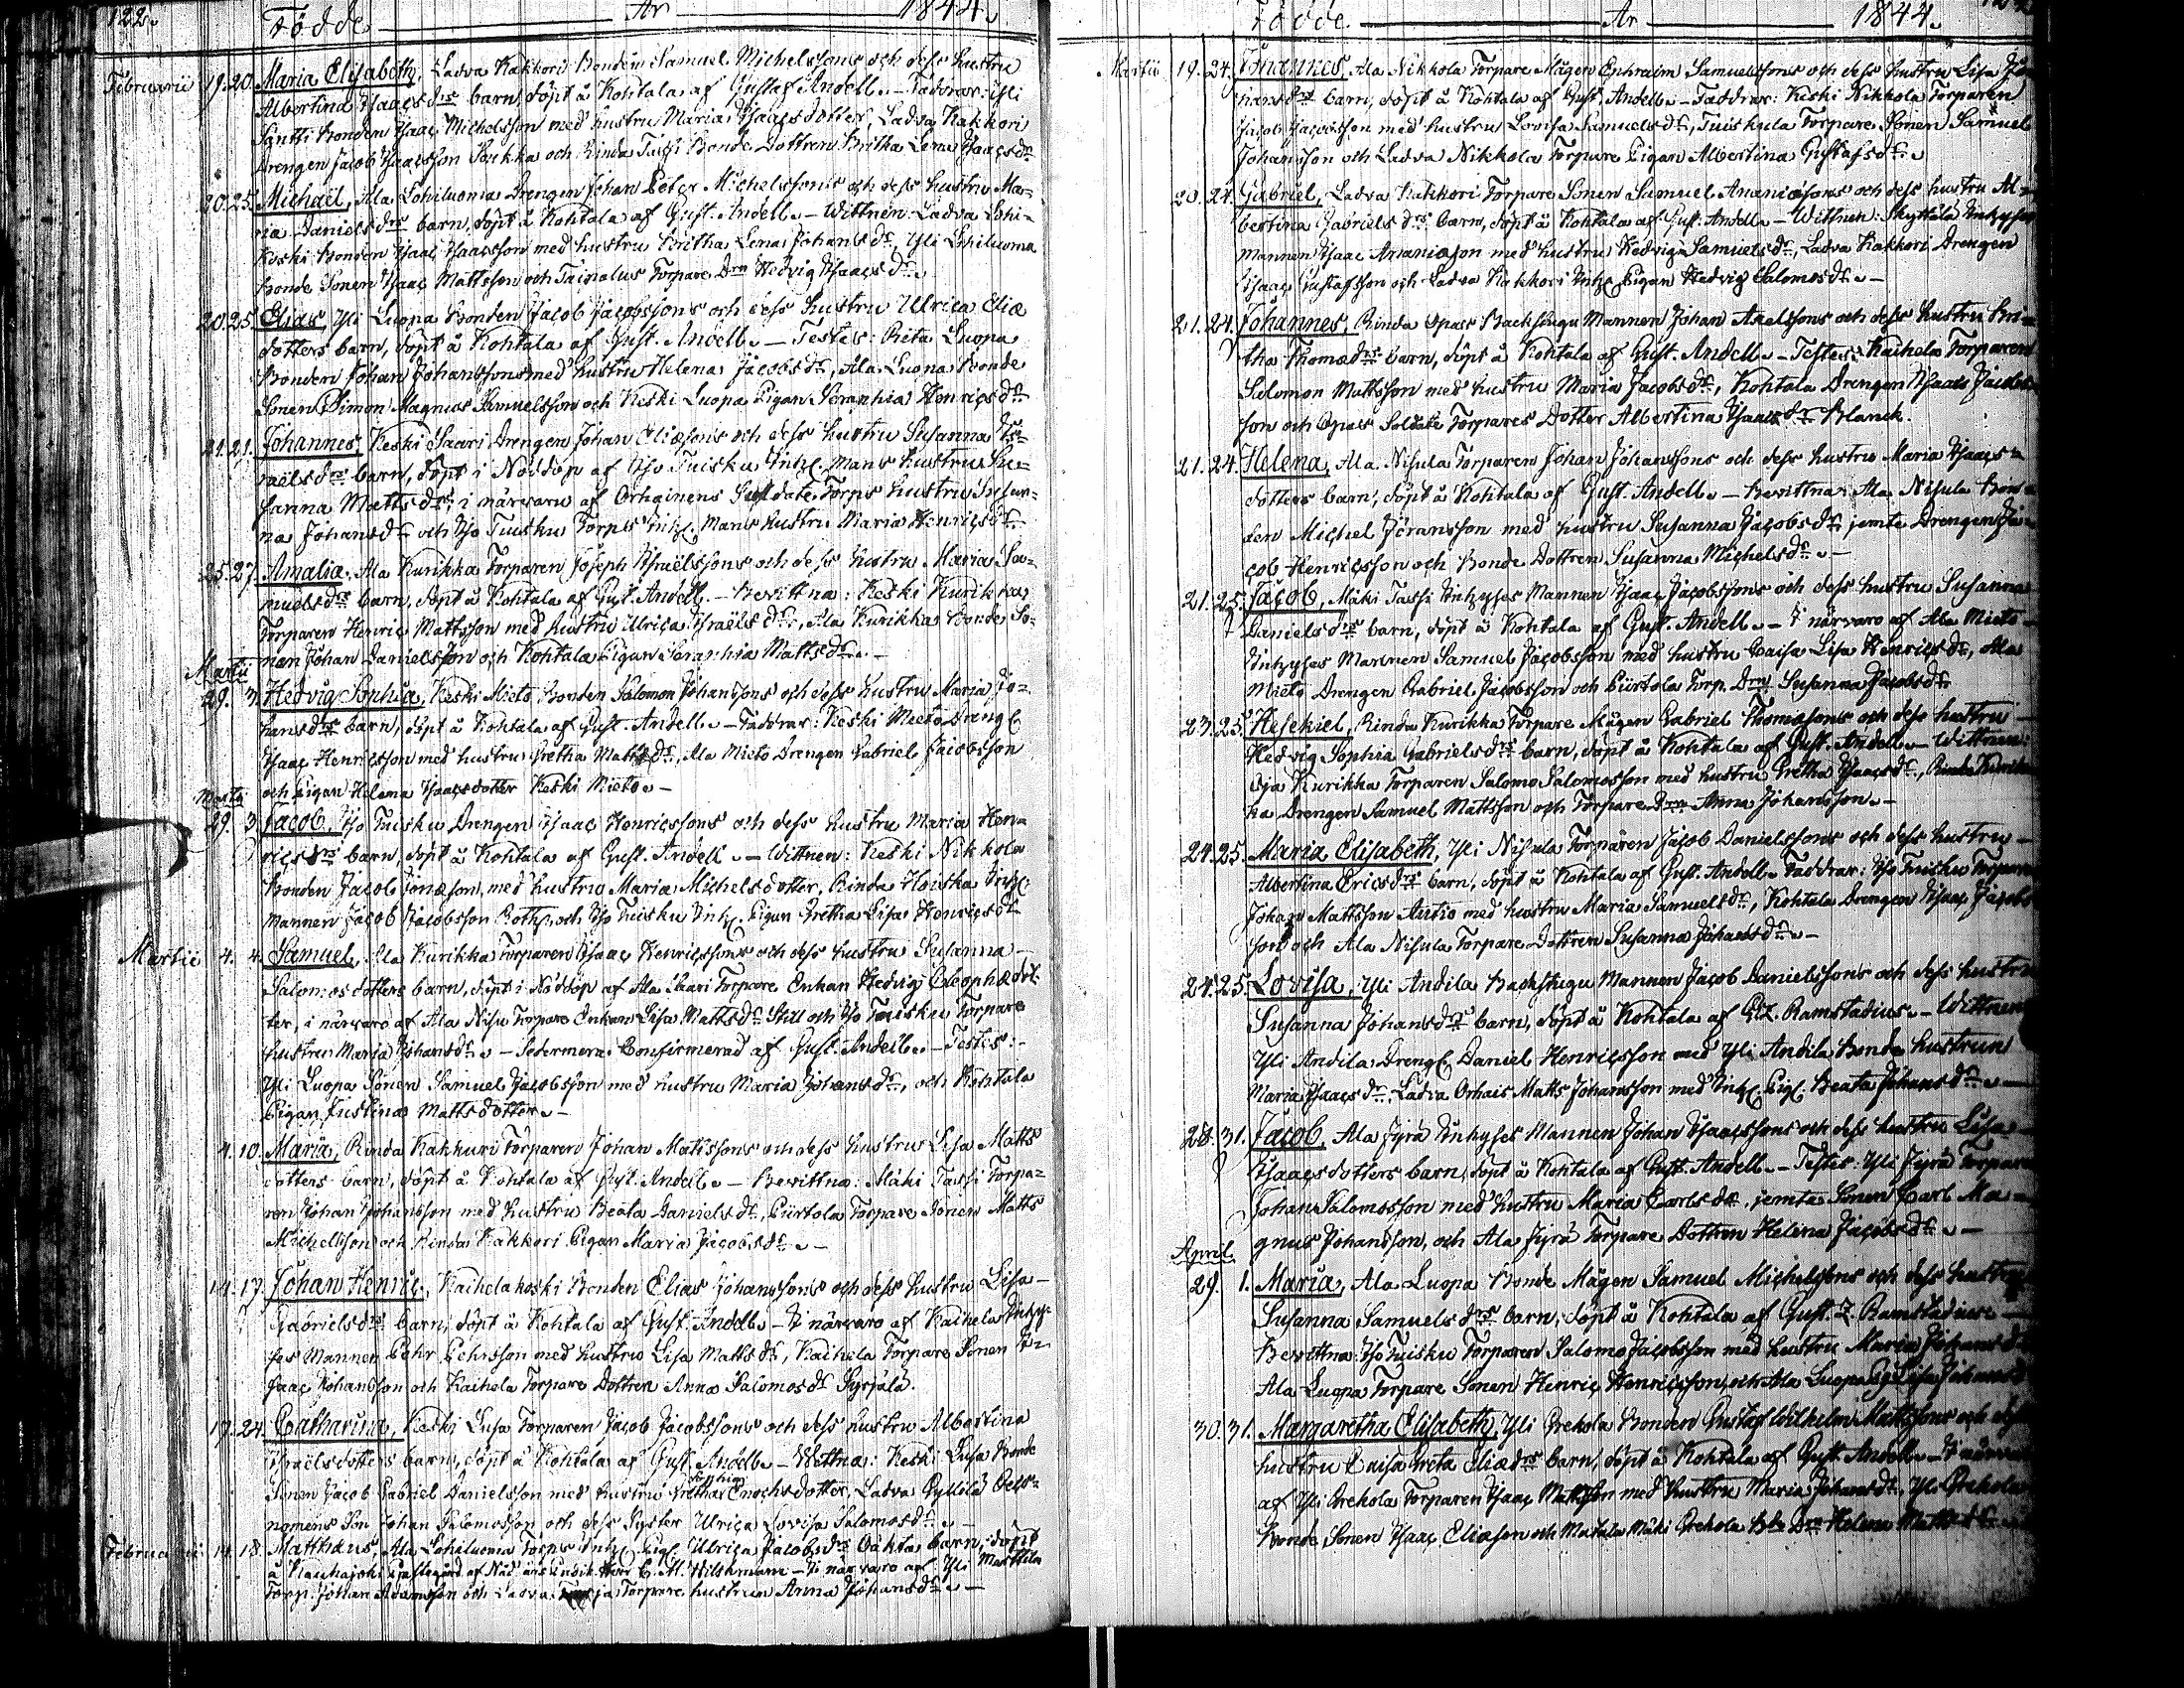 122.
Födde År 1844.
Februarii 19. 20. Maria Elisabeth, Ladva Kakkori Bonden Samuel Michelssons och dess hustru
Albertina Isaacs drs barn, döpt å Kohtala af Gustaf Andell. – Faddrar: Yli
Säntti Bonden Isaac Michelsson med hustru Maria Isaacsdotter, Ladva Kakkori
Drengen Jacob Isaacsson Loukka och Rinda Tassi Bonde Dottren Britha Lena Isaacs dr
20. 25. Michaël, Ala Lohiluoma Drengen Johan Peter Michelssons och dess hustru Ma-
ria Daniels drs barn, döpt å Kohtala af Gust. Andell. – Wittnen: Ladva Lohi-
koski Bonden Isaac Isaacsson med hustru Britha Lena Johans dr, Yli Lohiluoma
Bonde Sonen Isaac Mattsson och Tainalus Torpare Drn Hedvig Isaacs dr.
20. 25. Elias, Yli Luopa Bonden Jacob Jacobssons och dess hustru Ulrica Eliæ
dotters barn, döpt å Kohtala af Gust. Andell. – Testes: Rita Luopa
Bonden Johan Johanssons med hustru Helena Jacobs dr, Ala Luopa Bonde
Sonen Simon Magnus Samuelsson och Keski Luopa Pigan Seraphia Henrics dr
21. 21. Johannes, Keski Saari Drengen Johan Eliæsons och dess hustru Susanna Is-
raëls drs barn, döpt i Nöddop af Iso Tuisku Inh. Mans hustru Su-
sanna Matts dr, i närvaro af Orhainens Soldate Torps hustru Susan-
na Johans dr och Iso Tuisku Torps Inh. Mans hustru Maria Henrics dr
25. 27. Amalia, Ala Kurikka Torparen Joseph Israëlssons och dess hustru Maria Sa-
muels drs barn, döpt å Kohtala af Gust. Andell. – Bevittna: Keski Kurikka
Torparen Henric Mattsson med hustru Ulrica Israëls dr, Ala Kurikka Bonde So-
nen Johan Danielsson och Kohtala Pigan Seraphia Matts dr. –
Martii
29. 3. Hedvig Sophia, Keski Mieto Bonden Salomon Johanssons och dess hustru Maria Jo-
hans drs barn, döpt å Kohtala af Gust. Andell. – Faddrar: Keski Mieto Dreng
Isaac Henricsson med hustru Gretha Matts dr, Ala Mieto Drengen Gabriel Jacobsson
och Pigan Helena Isaacsdotter Keski Mieto. –
Martii
29. 3. Jacob, Iso Tuisku Drengen Isaac Henricssons och dess hustru Maria Hen-
rics drs barn, döpt å Kohtala af Gust. Andell. – Wittnen: Keski Nikkola
Bonden Jacob Jonæson, med hustru Maria Michelsdotter, Rinda Inh.
Mannen Jacob Jacobsson och Iso Tuisku Inh. Pigan Gretha Lisa Henrics dr
Martii 4. 4. Samuel, Ala Kurikka Torparen Isaac Henricssons och dess hustru Susanna
Salomos dotters barn, döpt i Nöddop af Ala Saari Torpare Enkan Hedvig Cleophæ dot-
ter, i närvaro af Ala Nisu Torpare Enkan Lisa Matts dr Still och Iso Tuisku Torpare
hustrun Maria Johans dr. – Sedermera Confirmerad af Gust. Andell. – Testes:
Yli Luopa Sonen Samuel Jacobsson med hustru Maria Johans dr, och Kohtala
Pigan Justina Mattsdotter. –
4. 10. Maria, Rinda Kakkuri Torparen Johan Mattssons och dess hustrus Lisa Matts
dotters barn, döpt å Kohtala af Gust. Andell. – Bevittna: Mäki Tassi Torpa-
ren Johan Johansson med hustru Beata Daniels dr, Piirtola Torpare Sonen Matts
Michelsson och Rinda Kakkori Pigan Maria Jacobs dr. –
14. 17. Johan Henric, Kaihelakoski Bonden Elias Johanssons och dess hustru Lisa
Gabriels drs barn, döpt å Kohtala af Gust. Andell. – I närvaro af Kaihela Inhy-
ses Mannen Pehr Pehrsson med hustru Lisa Matts dr, Kaihela Torpare Sonen I-
saac Johansson och Kaihela Torpare Dottren Anna Salomos dr Syrjälä.
17. 24. Catharina, Keski Lusa Torparen Jacob Jacobssons och dess hustru Albertina
Israëls dotters barn, döpt å Kohtala af Gust. Andell. – Wittna: Keski Lusa Bonde
Sonen Jacob Gabriel Danielsson med hustru Gretha Sophia Enochsdotter, Ladva Pyllilä Oeco-
nomens Son Johan Salomosson och dess Syster Ulrica Lovisa Salomos dr. –
Februarii 14. 18. Matthæus, Ala Lohiluoma Torps Inh. Pig. Ulrica Jacobs drs oäkta barn, döpt
å Kauhajoki Prästegård af – I närvaro af Yli Marttila
Torp. Johan Adamsson och Ladva Torpare hustrun Anna Johans dr. –
Födde År 1844.
Martii 19. 24. Johannes, Ala Nikkola Torpare Mågen Ephraim Samuelssons och dess hustru Lisa Jo-
hans drs barn, döpt å Kohtala af Gust. Andell. – Faddrar: Keski Nikkola Torparen
Jacob Jacobsson med hustru Lovisa Samuels dr, Tuiskula Torpare Sonen Samuel
Johansson och Ladva Nikkola Torpare Pigan Albertina Gustafs dr.
20. 24. Gabriel, Ladva Kakkori Torpare Sonen Samuel Ananiæsons och dess hustru Al-
bertina Gabriels drs barn, döpt å Kohtala af Gust. Andell. – Wittnen: Skyttälä Inhyses
mannen Isaac Ananiæson med hustru Hedviga Samuels dr, Ladva Kakkori Drengen
Isaac Gustafsson och Ladva Kakkori Inh. Pigan Hedvig Salomos dr. –
21. 24. Johannes, Rinda Opas Backstugu Mannen Johan Axelssons och dess hustru Bri-
tha Thomæ drs barn, döpt å Kohtala af Gust. Andell. – Testes: Kaihela Torparen
Salomon Mattsson med hustru Maria Jacobs dr, Kohtala Drengen Isaac Jacobs-
son och Opas Soldate Torpares Dotter Albertina Isaacs dr Blanck.
21. 24. Helena, Ala Nisula Torparen Johan Johanssons och dess hustru Maria Isaacs
dotters barn, döpt å Kohtala af Gust. Andell. – Bevittna: Ala Nisula Bon-
den Michel Jöransson med hustru Susanna Jacobs dr jemte Drengen Ja-
cob Henricsson och Bonde Dottren Susanna Michels dr. –
21. 25. Jacob, Mäki Tassi Inhyses Mannen Isaac Jacobssons och dess hustru Susanna
Daniels drs barn, döpt å Kohtala af Gust. Andell. – I närvaro af Ala Mieto
Inhyses Mannen Samuel Jacobsson med hustru Caisa Lisa Henrics dr, Ala
Mieto Drengen Gabriel Jacobsson och Piirtola Torp. Drn Susanna Jacobs dr
23. 25. Hesekiel, Rinda Kurikka Torpare Mågen Gabriel Thomæsons och dess hustru
Hedvig Sophia Gabriels drs barn, döpt å Kohtala af Gust. Andell. – Wittnen:
Oja Kurikka Torparen Salomo Salomosson med hustru Gretha Isaacs dr, Rinda Kurik-
ka Drengen Samuel Mattsson och Torpare Drn Anna Johansson. –
24. 25. Maria Elisabeth, Yli Nisula Torparen Jacob Danielssons och dess hustru
Albertina Erics drs barn, döpt å Kohtala af Gust. Andell. Faddrar: Iso Tuisku Torparen
Johan Mattsson Antio med hustru Maria Samuels dr, Kohtala Drengen Isaac Jacobs-
son och Ala Nisula Torpare Dottren Susanna Johans dr. –
24. 25. Lovisa, Yli Andila Backstugu Mannen Jacob Danielssons och dess hustru
Susanna Johans drs barn, döpt å Kohtala af G. Z. Ramstadius. – Wittnen
Yli Andila Dreng. Daniel Henricsson med Yli Andila Bonde hustrun
Maria Isaacs dr, Ladva Orhais Matts Johansson med Inh. Pig. Beata Johans dr. –
28. 31. Jacob, Ala Jyrä Inhyses Mannen Johan Isaacssons och dess hustru Lisa
Isaacsdotters barn, döpt å Kohtala af Gust. Andell. – Testes: Yli Jyrä Torpare
Johan Salomosson med hustru Maria Carls dr, jemte Sonen Carl Ma-
gnus Johansson, och Ala Jyrä Torpare Dottren Helena Jacobs dr. –
April
29. 1. Maria, Ala Luopa Bonde Mågen Samuel Michelssons och dess hustru
Susanna Samuels drs barn, döpt å Kohtala af Gust. Z. Ramstadius –
Bevittna: Iso Tuisku Torparen Salomo Jacobsson med hustru Maria Johans dr
Ala Luopa Torpare Sonen Henric Henricsson, och Ala Luopa Pig. Lisa Johans dr
30. 31. Margaretha Elisabeth, Yli Orekola Bonden Gustaf Wilhelm Mattssons och dess
hustru Caisa Greta Eliæ drs barn, döpt å Kohtala af Gust. Andell – I närvaro
af Yli Orekola Torparen Isaac Mattsson med hustru Maria Johans dr, Yli Orekola
Bonde Sonen Isaac Eliæson och Matala Mäki Orekola Bde Drn Helena Matts dr. –